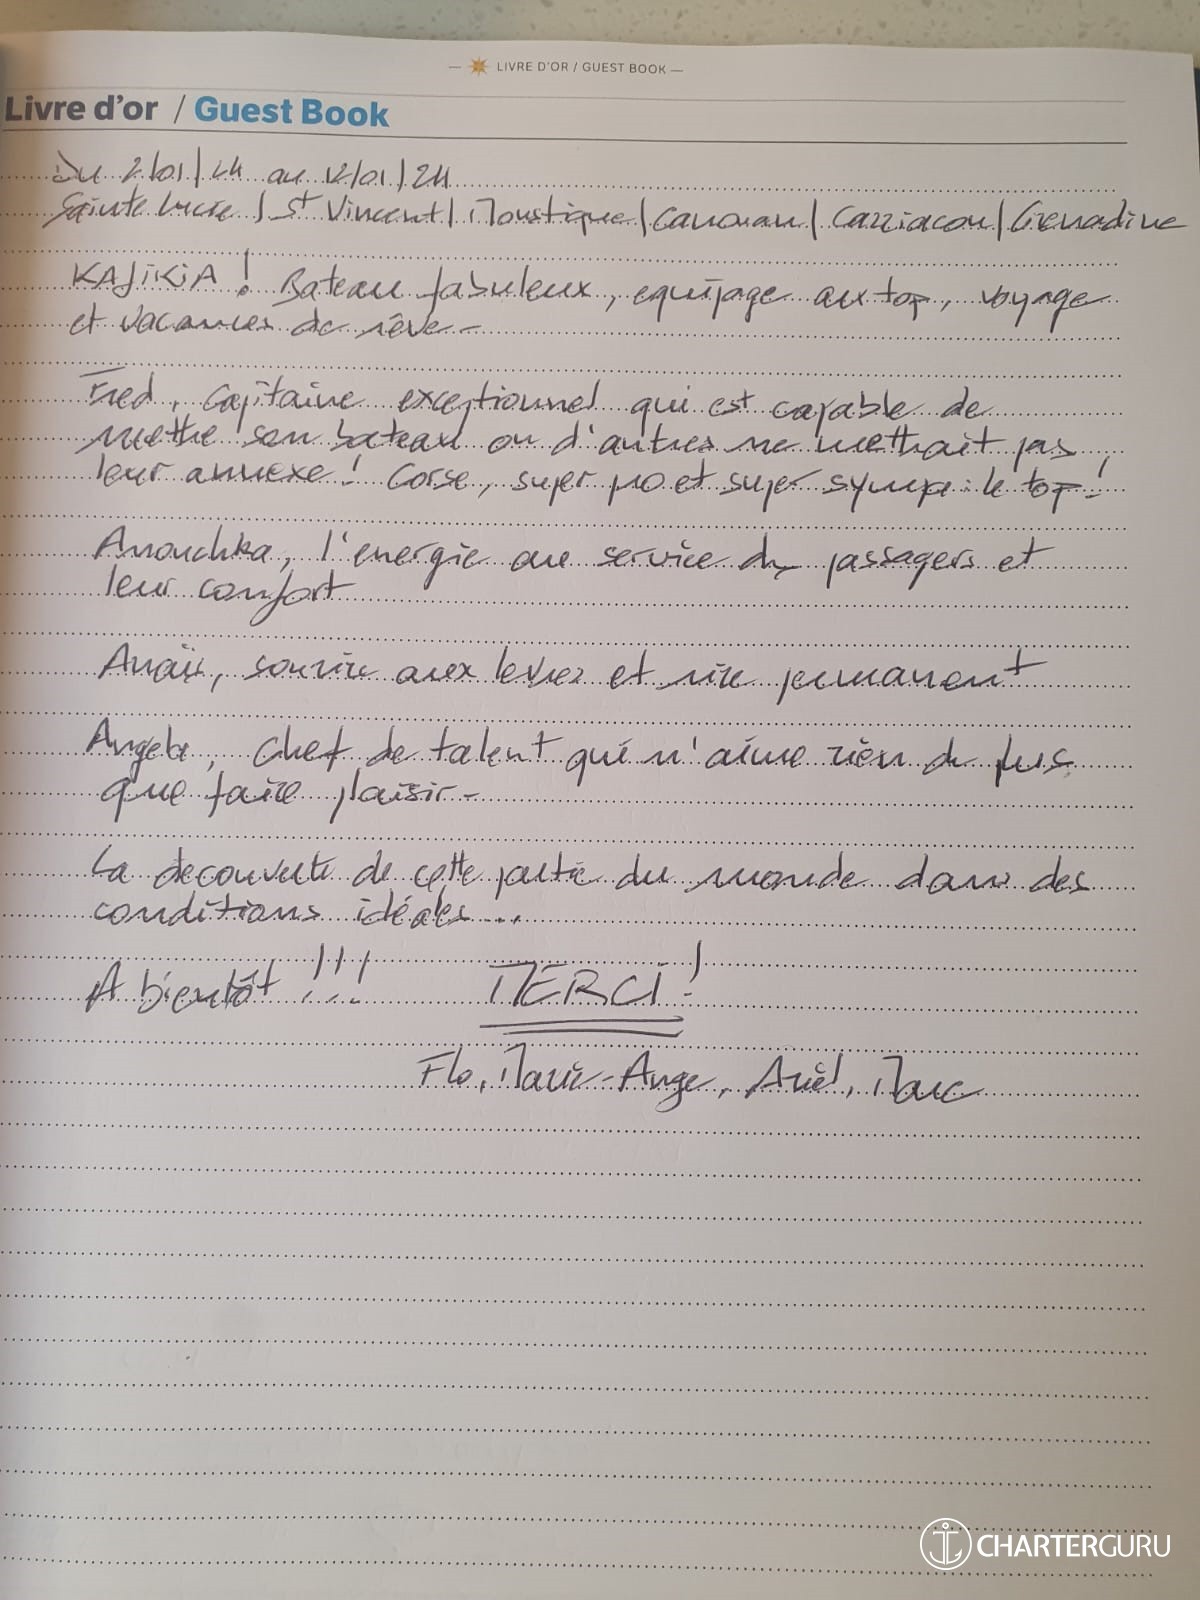 LIVRE D'OR / GUEST BOOK
Livre d'or / Guest Book
Du 2/01/24 au 12/01/24
Sainte Lucie / St Vincent / Moustique / Canouan / Carriacou / Grenadine
KAJIKIA ! Bateau fabuleux, equipage au top, voyage
et vacances de rêve -
Fred, Capitaine exceptionnel qui est capable de
mettre son bateau ou d'autres ne mettrait pas
leur annexe ! Corse, super pro et super sympa : le top !
Anouchka, l'energie au service des passagers et
leur confort
Anaïs, sourire aux levres et rire permanent
Angela, Chef de talent qui n'aime rien de plus
que faire plaisir -
La decouverte de cette partie du monde dans des
conditions idéales ...
A bientôt !!! MERCI !
Flo, Marie-Ange, Ariel, Marc
CHARTERGURU